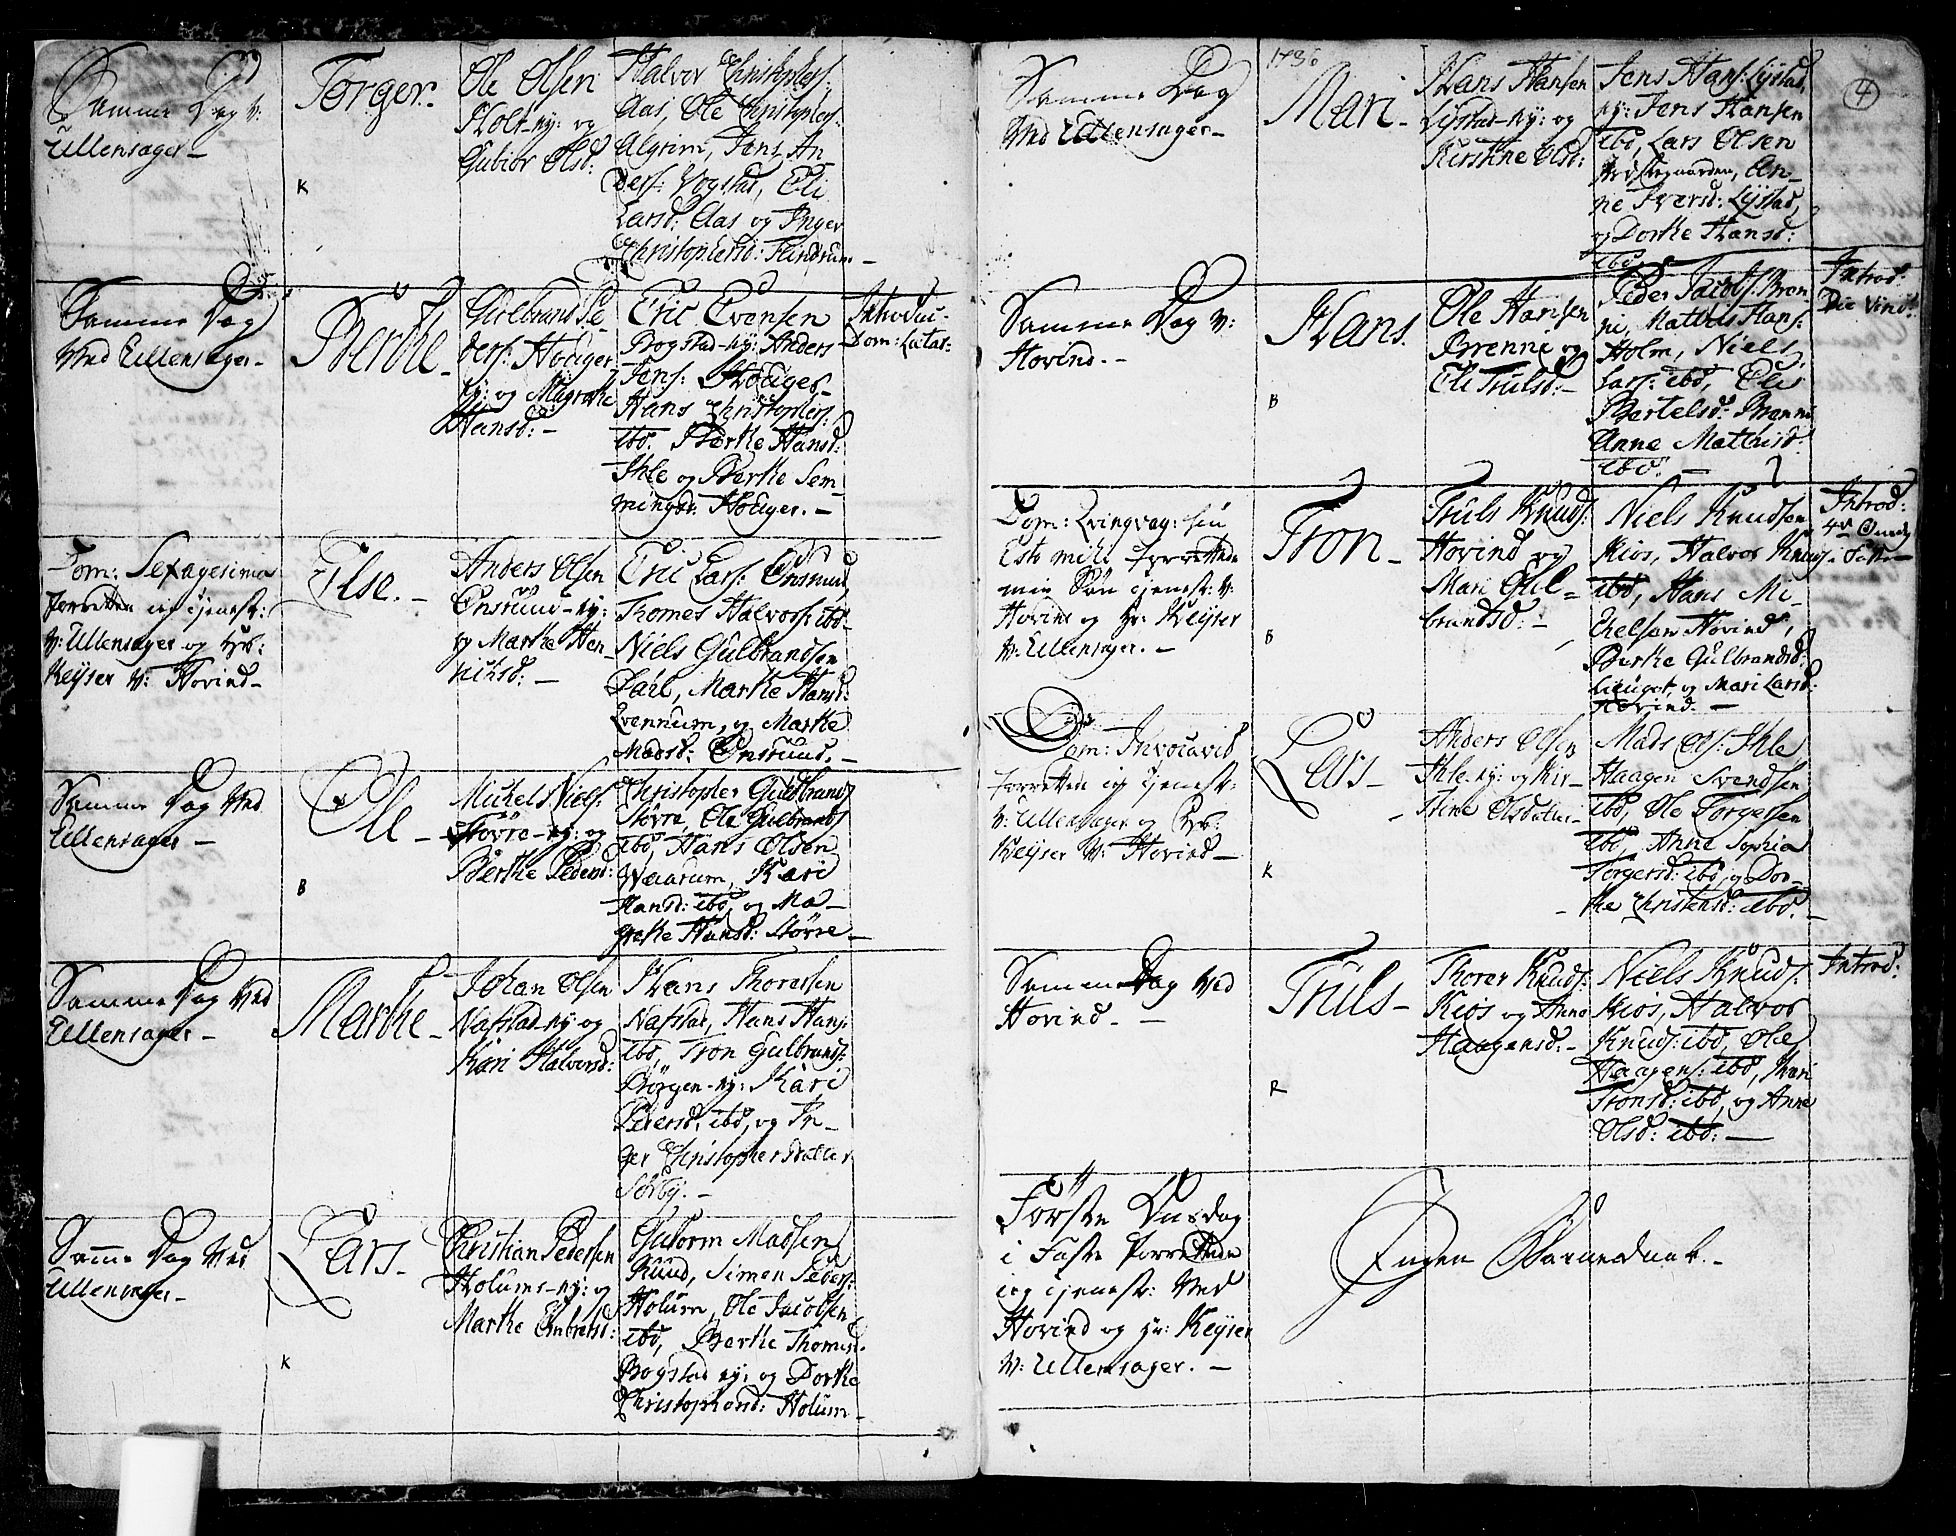 Samme Dag v:
Ullensager –
Torger.
K
Ole Olsen
Holt-ny: og
Gubiør Olsd:
Halvor Christophers:
Aas, Ole Christophers:
Algrim, Jens An
ders: Vogstad, Eli
Larsd: Aas og Inger
Christophersd: Flindrum –
Samme Dag
Ved Ullensager –
Berthe –
Gulbrand Pe
ders: Hodiger
ny: og Magrethe
Hansd: –
Eric Evensen
Bogstad-ny: Anders
Jens: Hodiger
Hans Christophers:
ibd. Berthe Hansd:
Ihle og Berthe Sem
mingsd: Hodiger. –
Introduc:
Dom: Lætar:
Dom: Sexagesima
forretten ieg tjenest:
v: Ullensager og Hr:
Keyser v: Hovind –
Else. –
Anders Olsen
Onsrud-ny:
og Marthe Hen
richsd: –
Eric Lars: Onsrud,
Thomes Halvors: ibd
Niels Gulbrandsen
Dæel, Marthe Hansd:
Qvennum, og Marthe
Madsd: Onsrud. –
Samme Dag Ved
Ullensager –
Ole –
B
Michel Niels:
Høvre-ny: og
Berthe Pedersd:
Christopher Guldbrands
Høvre, Ole Gulbrands
ibd, Hans Olsen
Waarum, Kari
Hansd: ibd, og Ma
grethe Hansd: Høvre –
Samme Dag Ved
Ullensager –
Marthe –
Johan Olsen
Nafstad-ny: og
Kari Halvorsd:
Hans Thoresen
Nafstad, Hans Hans:
ibd, Tron Gulbrands:
Børgen-ny: Kari
Pedersd: ibd, og In
ger Christophersdatter
Sørbÿ. –
Samme Dag Ved
Ullensager –
Lars –
K
Christian Pedersen
Holums-ny: og
Marthe Embretsd:
Gutorm Madsen
Ruud, Simen Peders:
Holum, Ole Jacobsen
ibd, Berthe Thomesd.
Bogstad ny: og Dorthe
Christophersd: Holum –
1736
4
Samme Dag
Ved Ullensager –
Mari –
Hans Hansen
Lÿstad-ny: og
Kirstine Olsd:
Jens Hans: Lÿstad,
ny: Jens Hansen
ibd, Lars Olsen
Præstegaarden, An
ne Iversd: Lÿstad,
og Dorthe Hansd:
ibd.
Samme Dag v:
Hovind. –
Hans.
B
Ole Hansen
Brenni og
Eli Trulsd: –
Peder Jacobs: Bren
ni, Mathis Hans:
Holm, Niels
Lars: ibd, Eli
Bertelsd: Brenni
Anne Mathisd:
ibd. –
Introd:
Die Vind:
Dom: Qvinqvag: seu
Esto mihi forrettede
min Søn tjenest: v:
Hovind og Hr: Keyser
v: Ullensager. –
Tron –
B
Truls Knuds:
Hovind og
Mari Gul
brandsd: –
Niels Knudsen
Kios, Halvor Knuds:
ibd, Hans Mi
chelsen Hovind,
Berthe Gulbrandsd:
og Mari Larsd:
Hovind. –
Introd:
Dom: Invocavit
forretten ieg tjenest:
v: Ullensager og Hr:
Keyser v: Hovind –
Lars –
K
Anders Olsen
Ihle-ny: og Kir
stine Olsdatter –
Mads Ols: Ihle
Haagen Svendsen
ibd, Ole Torgersen
ibd, Anne Sophia
Torgersd: ibd, og Dor
the Christensd: ibd. –
Samme Dag Ved
Hovind. –
Truls –
R
Thorer Knuds:
Kios og Anne
Haagensd: –
Niels Knuds:
Kios, Halvor
Knuds: ibd, Ole
Haagens: ibd, Kari
Tronsd: ibd, og Anne
Olsd: ibd: –
Introd:
Første Onsdag
i Faste forrettede
ieg tjenest: Ved
Hovind og Hr: Keyser
v: Ullensager. –
Ingen Barnedaab. –